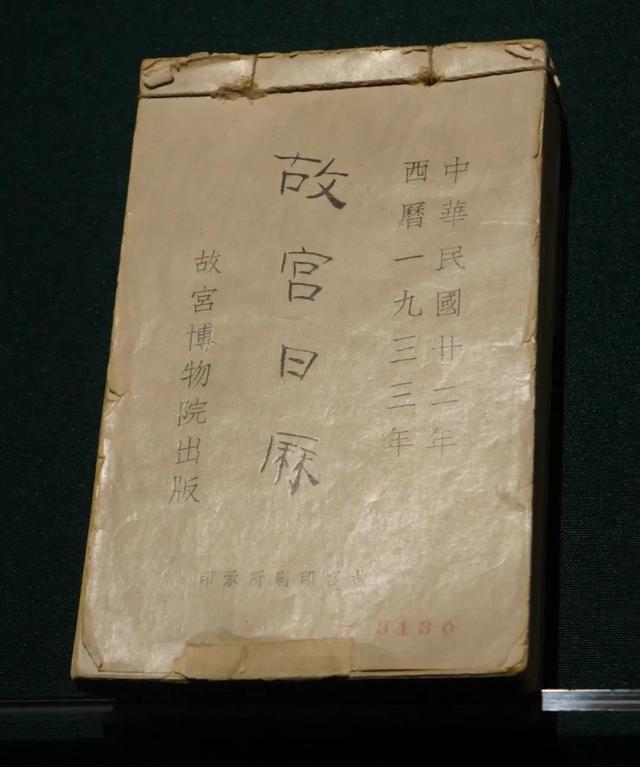 中華民國廿二年
西曆一九三三年
故宫日厤
故宮博物院出版
故宮印刷所承印
3130